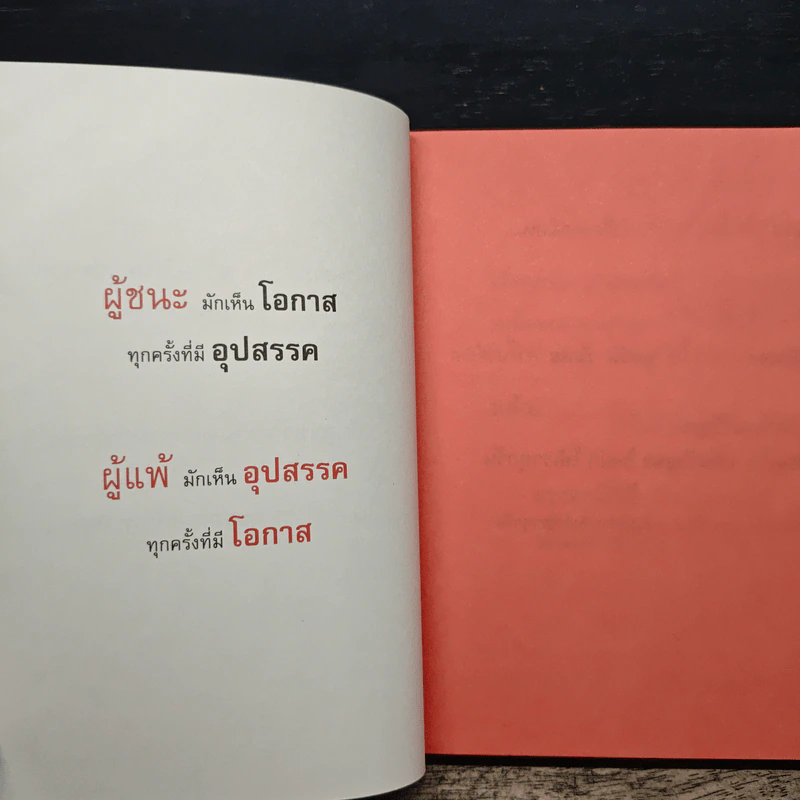 ผู้ชนะ มักเห็น โอกาส
ทุกครั้งที่มี อุปสรรค
ผู้แพ้ มักเห็น อุปสรรค
ทุกครั้งที่มี โอกาส